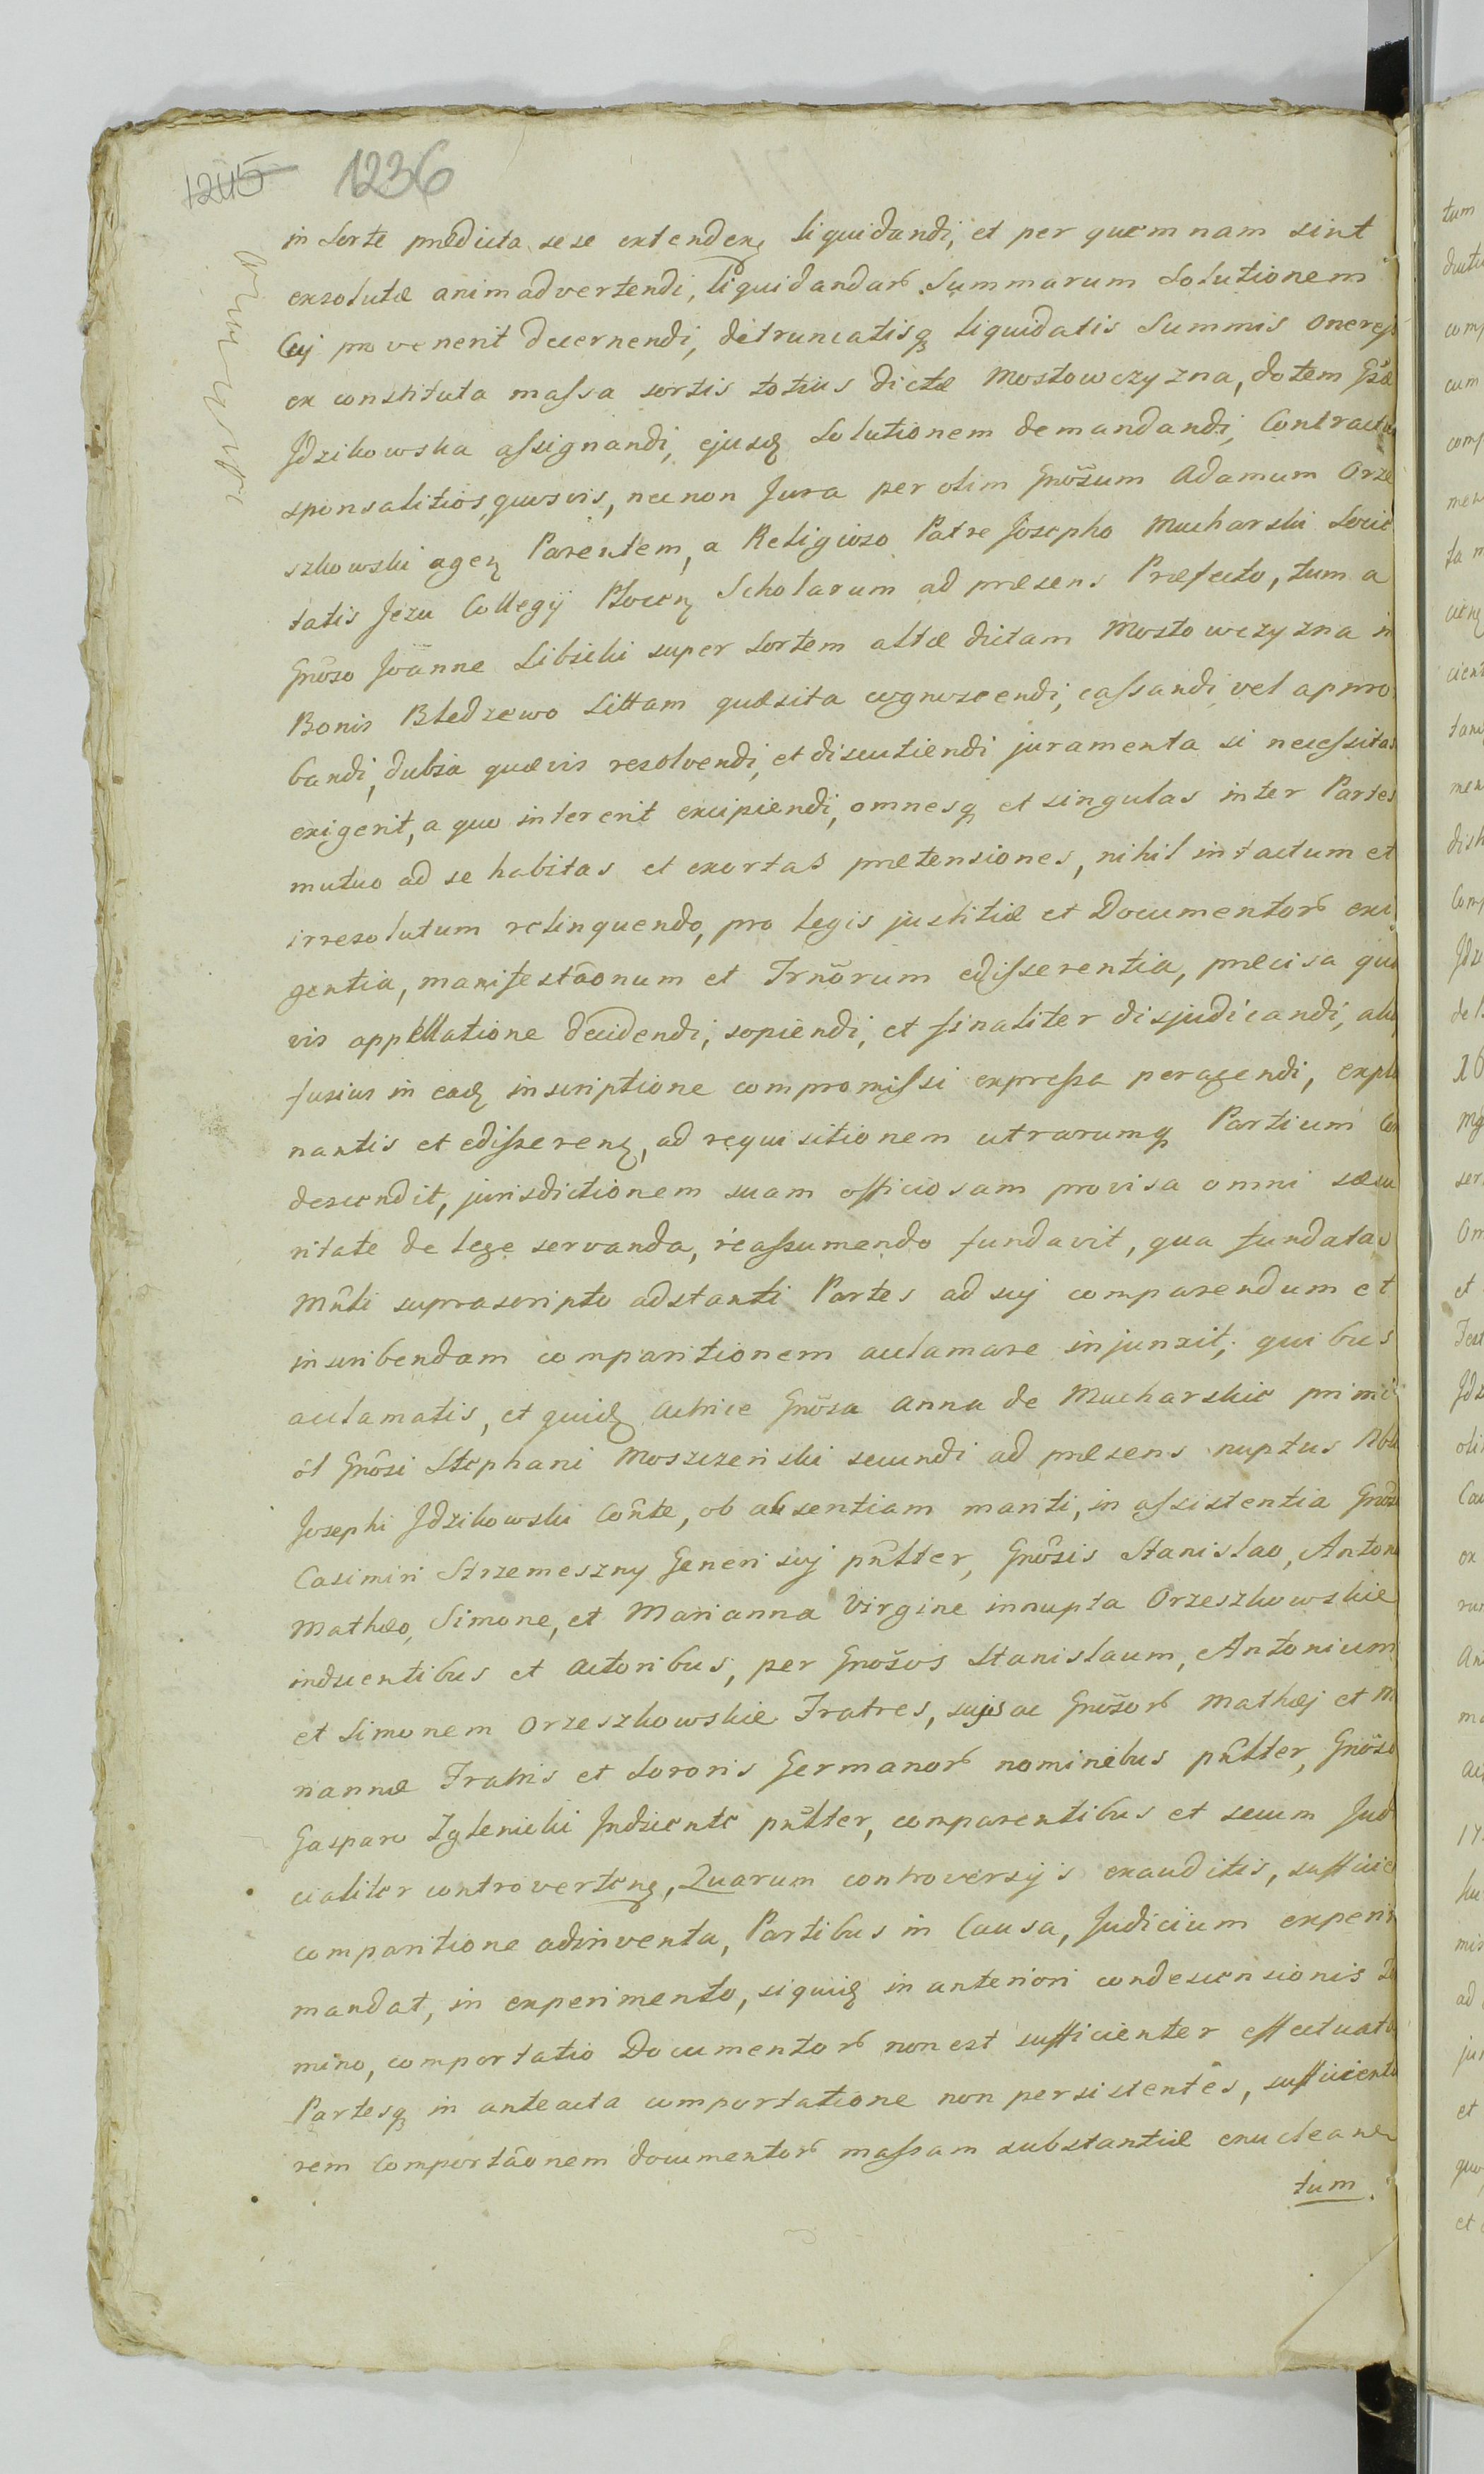 1245 1236
in Sorte prædicta sese extendenꝫ liquidandi, et per quemnam sint
exsolutæ animadvertendi, liquidandarꝭ Summarum Solutionem
Cuj provenerit decernendi, detruncatisqꝫ liquidatis Summis
ex constituta massa sortis totius dictæ Mostowczyzna, dotem Gsæ
Jdzikowska assignandi, ejusqꝫ Solutionem demandandi, Contractus
sponsalitios quosvis, nec non Jura per olim Gnosum Adamum Orze
szkowski agenꝫ Parentem, a Religioso Patre Josepho Mucharski Socie
tatis Jezu Collegij Plocenꝫ Scholarum ad præsens Præfecto, tum a
Gnoso Joanne Libicki super Sortem altæ dictam Mostowczyzna in
Bonis Bledzewo Sittam quæsita cognoscendi, cassandi vel appro
bandi, dubia quævis resolvendi, et discutiendi juramenta si necessitas
exigerit, a quo intererit excipiendi, omnesqꝫ et singulas inter Partes
mutuo ad se habitas et exortas prætensiones, nihil intactum et
irresolutum relinquendo, pro Legis justitiæ et Documentorꝭ exi
gentia, manifestãonum et Trnõrum edisserentia, præcisa qua
vis appellatione decidendi, sopiendi, et finaliter disjudicandi,
fusius in eadꝫ inscriptione compromissi expressa peragendi,
nantis et edisserenꝫ, ad requisitionem utrarumqꝫ Partium Con
descendit, jurisdictionem suam officiosam provisa omni secu
ritate de lege servanda, reassumendo fundavit, qua fundata
Mñti suprascripto adstanti Partes ad suj comparendum et
inscribendam comparitionem acclamare injunxit, quibus
acclamatis, et quidꝫ Actrice Gnõsa Anna de Mucharskie primi
ol Gnõsi Stephani Moszczenski secundi ad præsens nuptus Nbli
Josephi Jdzikowski Coñte, ob absentiam mariti, in assistentia Gnosi
Casimiri Strzemeszny Generi suj pñlter, Gnõsis Stanislao, Antonio
Mathæo, Simone, et Marianna Virgine innupta Orzeszkowskie
inducentibus et Actoribus, per Gnosos Stanislaum, Antonium
et Simonem Orzeszkowskie Fratres, sujs ac Gnõsorꝭ Mathæj et Ma
riannæ Fratris et Sororis Germanorꝭ nominibus pñlter, Gnoso
Gasparo Zglenicki Jnducente pñlter, comparentibus et secum Judi
cialiter controvertenꝫ, Quarum controversijs exauditis, sufficie
comparitione adinventa, Partibus in Causa, Judicium experiri
mandat, in experimento, siquidꝫ in anteriori condescensionis Ter
mino, comportatio Documentorꝭ non est sufficienter effectuata
Partesqꝫ in anteacta comportatione non persistentes, sufficientio
rem Comportãonem documentorꝭ massam substantiæ enuclean
tum.